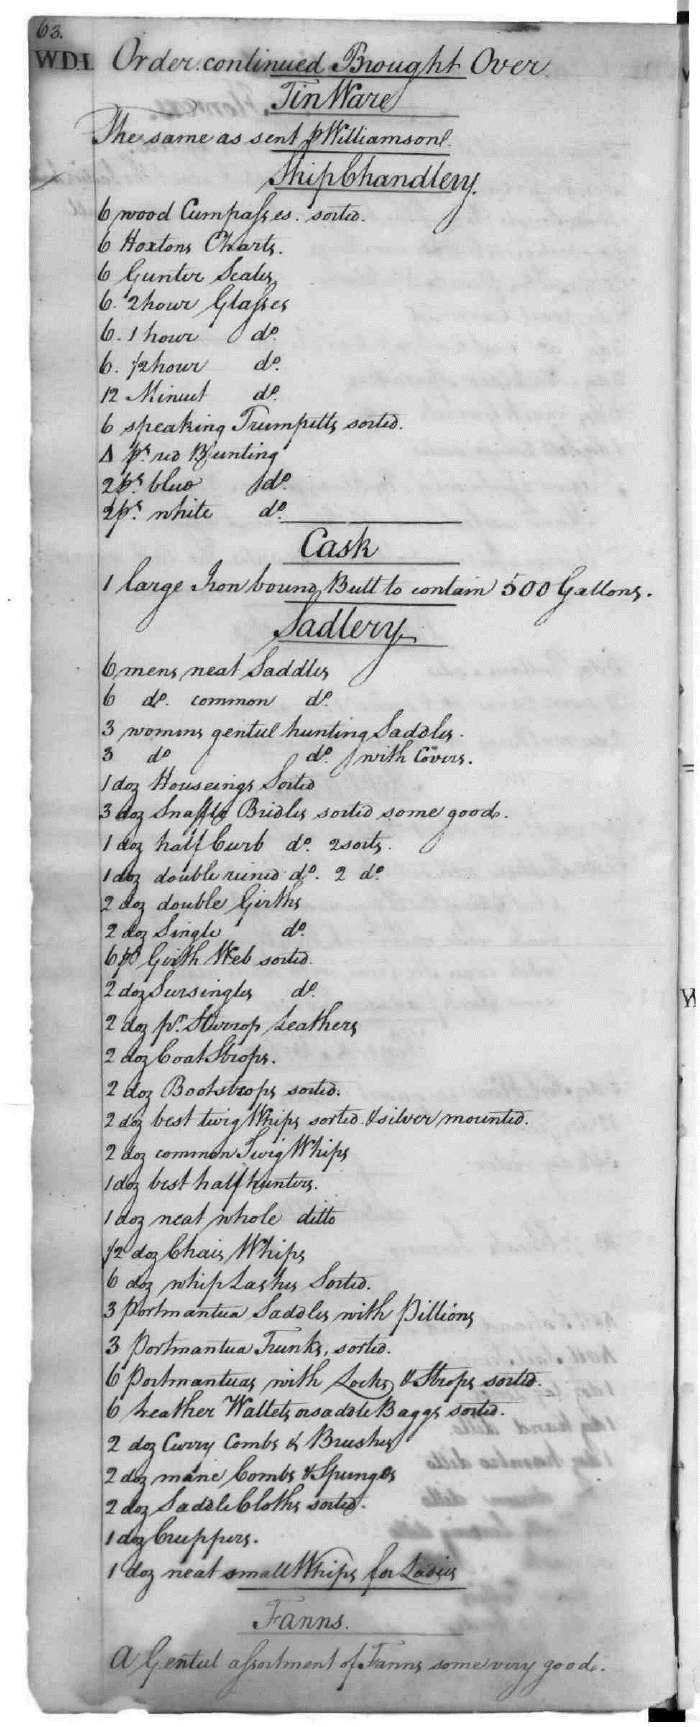 63.
WDL Order continued Brought Over
Tin Ware
The same as sent p Williamson
Ship Chandlery.
6 wood Cumpasses. sorted.
6 Hoxtons Charts.
6 Gunter Scales
6. 2 hour Glasses
6. 1 hour do.
6. 1/2 hour do.
12 Minuet do.
6 speaking Trumpetts sorted.
ps red Bunting
2 ps blue do.
2 ps. white do.
Cask
1 large Iron bound Butt to contain 500 Gallons.
Sadlery
6 mens neat Saddles
6 do. common do.
3 womins genteel hunting Saddles.
3 do do. with Covers.
1 doz Houseings Sorted
3 doz Snaffle Bridles sorted some good.
1 doz half Curb do. 2 sorts.
1 doz double reined do. 2 do.
2 doz double Girths
2 doz Single do.
6 ps Girth Web sorted.
2 doz Sursingles do.
2 doz pr. Stirrop Leathers
2 doz Coat Strops.
2 doz Bootstrops sorted.
2 doz best twig Whips sorted & silver mounted.
2 doz common Twig Whips
1 doz best half hunters.
1 doz neat whole ditto
1/2 doz Chair Whips
6 doz whip Lashes Sorted.
3 Portmantua Saddles with Pillions
3 Portmantua Trunks, sorted.
6 Portmantuas with Locks & Strops sorted.
6 Leather Wallets or saddle Baggs sorted.
2 doz Curry Combs & Brushes
2 doz mane Combs & Spunges
2 doz Saddle Cloths sorted.
1 doz Cruppers.
1 doz neat small Whips for Ladies
Fanns.
A Genteel assortment of Fanns some very good.